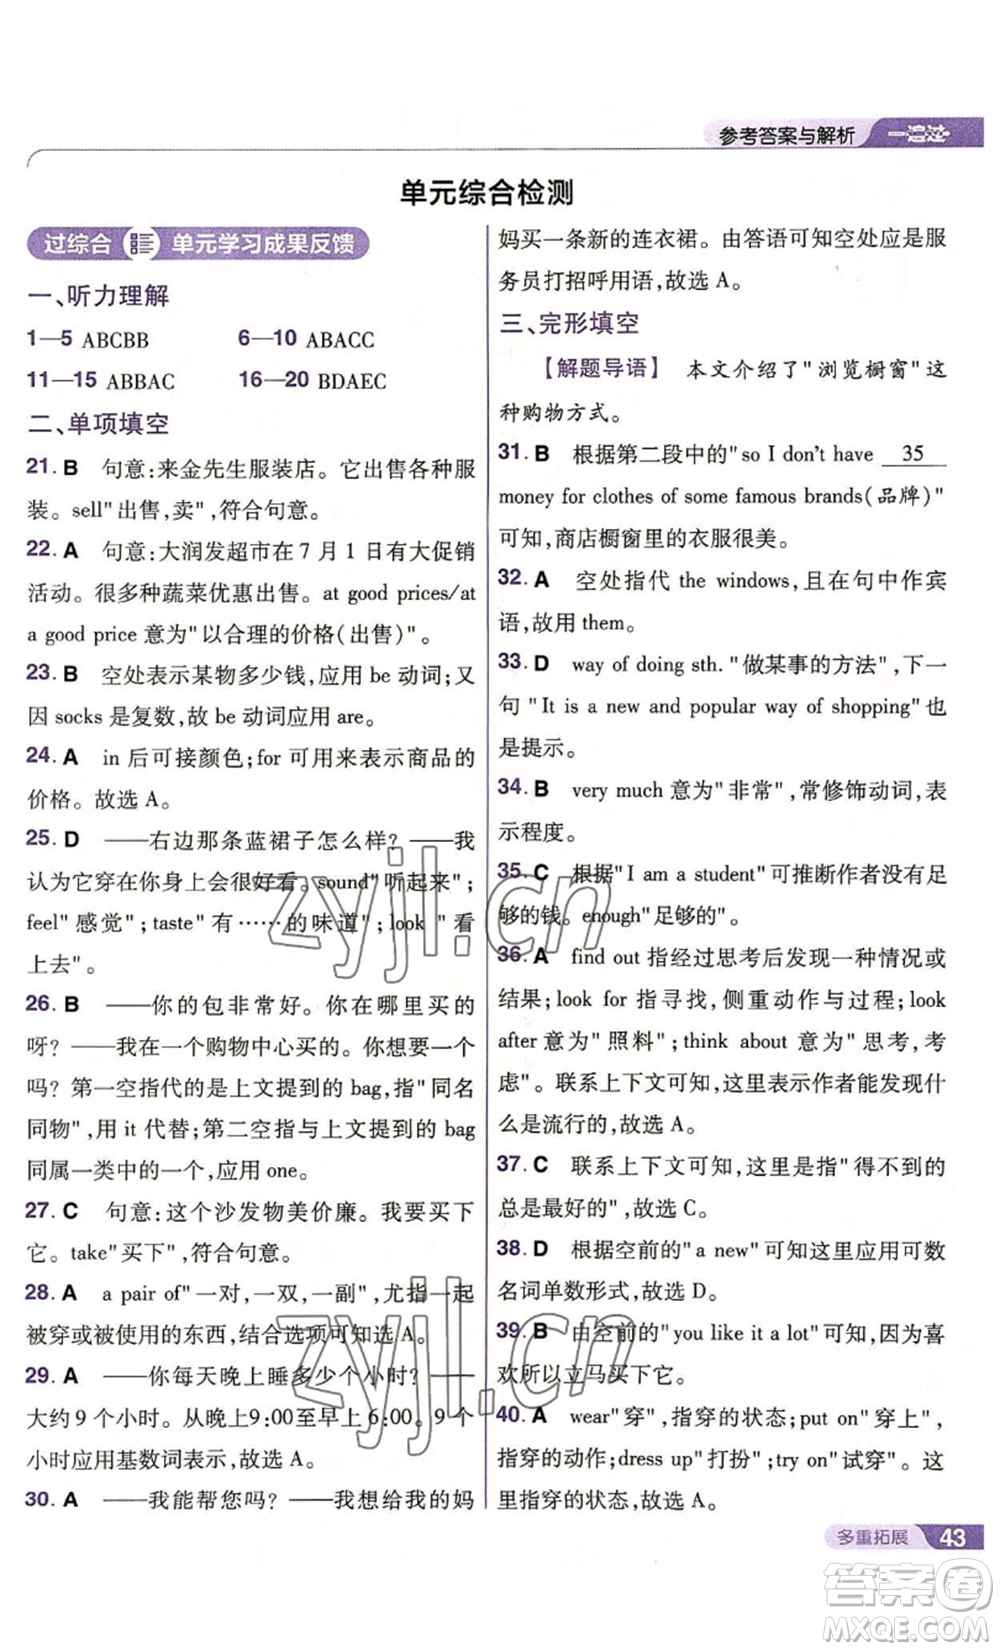 参考答案与解析 一遍过
单元综合检测
过综合 单元学习成果反馈
一、听力理解
1—5 ABCBB 6—10 ABACC
11—15 ABBAC 16—20 BDAEC
二、单项填空
21. B 句意：来金先生服装店。它出售各种服
装。sell"出售,卖",符合句意。
22. A 句意：大润发超市在 7 月 1 日有大促销
活动。很多种蔬菜优惠出售。at good prices/at
a good price 意为"以合理的价格(出售)"。
23. B 空处表示某物多少钱,应用 be 动词;又
因 socks 是复数,故 be 动词应用 are。
24. A in 后可接颜色;for 用来表示商品的
价格。故选 A。
25. D ——右边那条蓝裙子怎么样? ——我
认为它穿在你身上很好看。sound"听起来";
feel"感觉";taste"有……的味道";look "看
上去"。
26. B ——你的包非常好。你在哪里买的
呀? ——我在一个购物中心买的。你想要一个
吗? 第一空指代的是上文提到的 bag,指"同名
同物",用 it 代替;第二空指与上文提到的 bag
同属一类中的一个,应用 one。
27. C 句意:这个沙发物美价廉。我要买下
它。take"买下",符合句意。
28. A a pair of"一对,一双,一副",尤指一起
被穿或被使用的东西,结合选项可知选 A。
29. A ——你每天晚上睡多少个小时? ——
大约 9 个小时。从晚上9:00至早上6:00。9 个
小时应用基数词表示,故选 A。
30. A ——我能帮您吗? ——我想给我的妈
妈买一条新的连衣裙。由答语可知空处应是服
务员打招呼用语,故选 A。
三、完形填空
【解题导语】 本文介绍了"浏览橱窗"这
种购物方式。
31. B 根据第二段中的"so I don't have 35
money for clothes of some famous brands(品牌)"
可知,商店橱窗里的衣服很美。
32. A 空处指代 the windows,且在句中作宾
语,故用 them。
33. D way of doing sth."做某事的方法",下一
句"It is a new and popular way of shopping"也
是提示。
34. B very much 意为"非常",常修饰动词,表
示程度。
35. C 根据"I am a student"可推断作者没有足
够的钱。enough"足够的"。
36. A find out 指经过思考后发现一种情况或
结果;look for 指寻找,侧重动作与过程;look
after 意为"照料";think about 意为"思考,考
虑"。联系上下文可知,这里表示作者能发现什
么是流行的。故选 A。
37. C 联系上下文可知,这里是指"得不到的
总是最好的",故选 C。
38. D 根据空前的"a new"可知这里应用可数
名词单数形式,故选 D。
39. B 由空前的"you like it a lot"可知,因为喜
欢所以立马买下它。
40. A wear"穿",指穿的状态;put on"穿上",
指穿的动作;dress up"打扮";try on"试穿"。这
里指穿的状态,故选 A。
多重拓展 43
zyjl.cn
zyjl.cn
答案卷
MXQE.COM